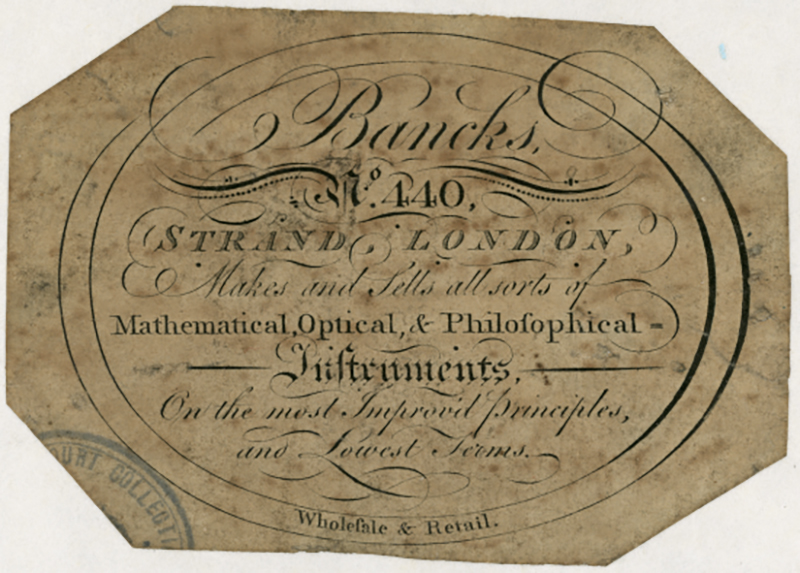 Bancks,
No. 440,
STRAND, LONDON,
Makes and Sells all sorts of
Mathematical, Optical, & Philoſophical =
Inſtruments,
On the most Improv'd Principles,
and Lowest Terms.
Wholeſale & Retail.
COURT COLLECT